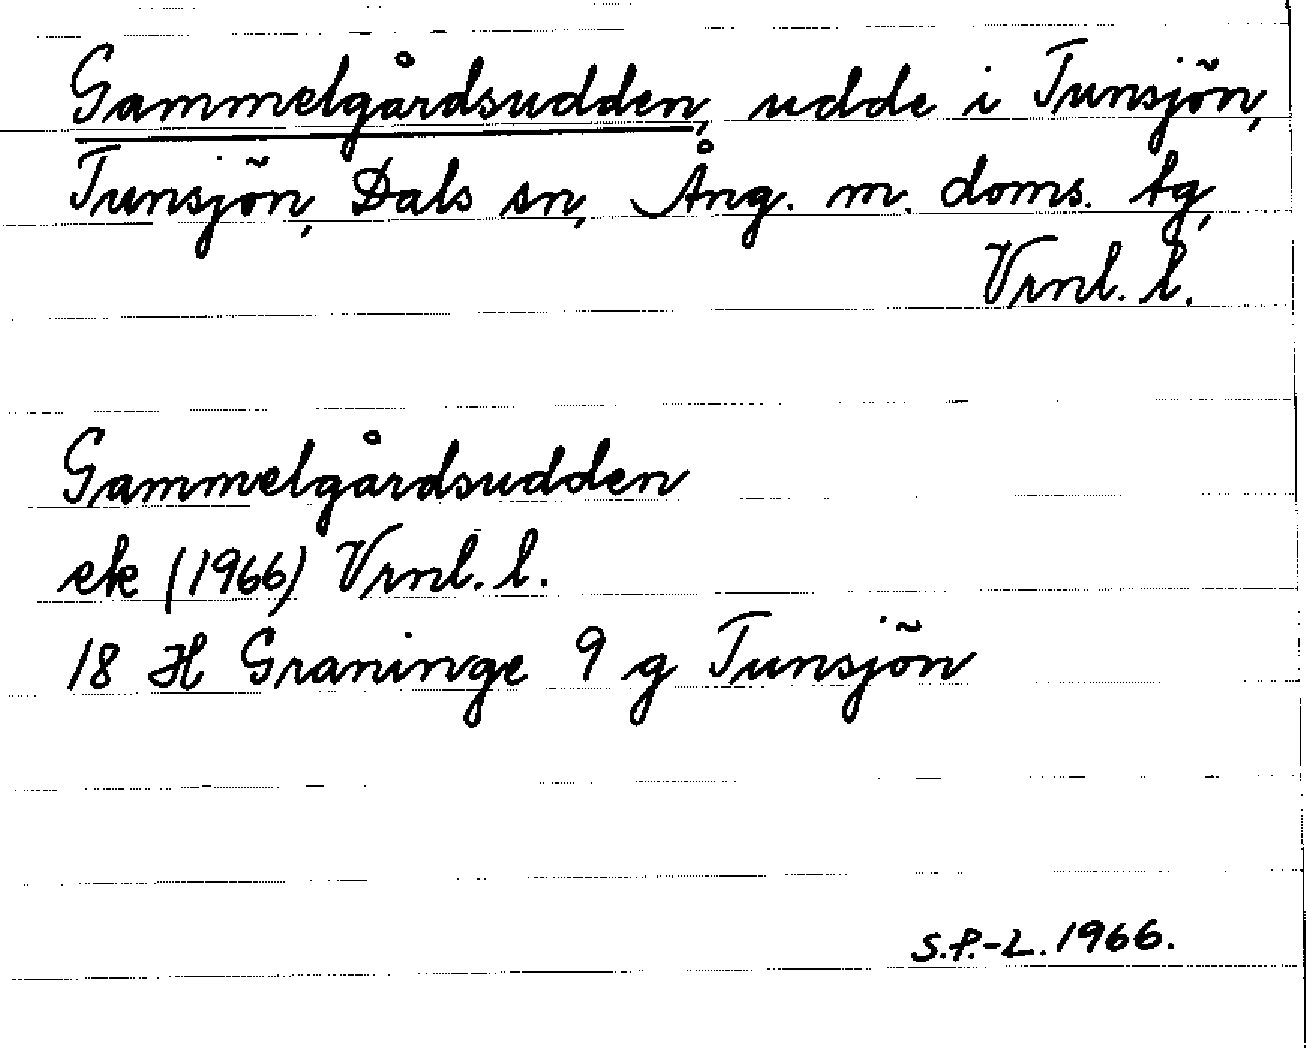 Gammelgårdsudden, udde i Tunsjön,
Tunsjön, Dals sn, Ång. m. doms. tg,
Vrnl. l.
Gammelgårdsudden
ek (1966) Vrnl. l.
18 H Graninge 9 g Tunsjön
S.P.-L. 1966.